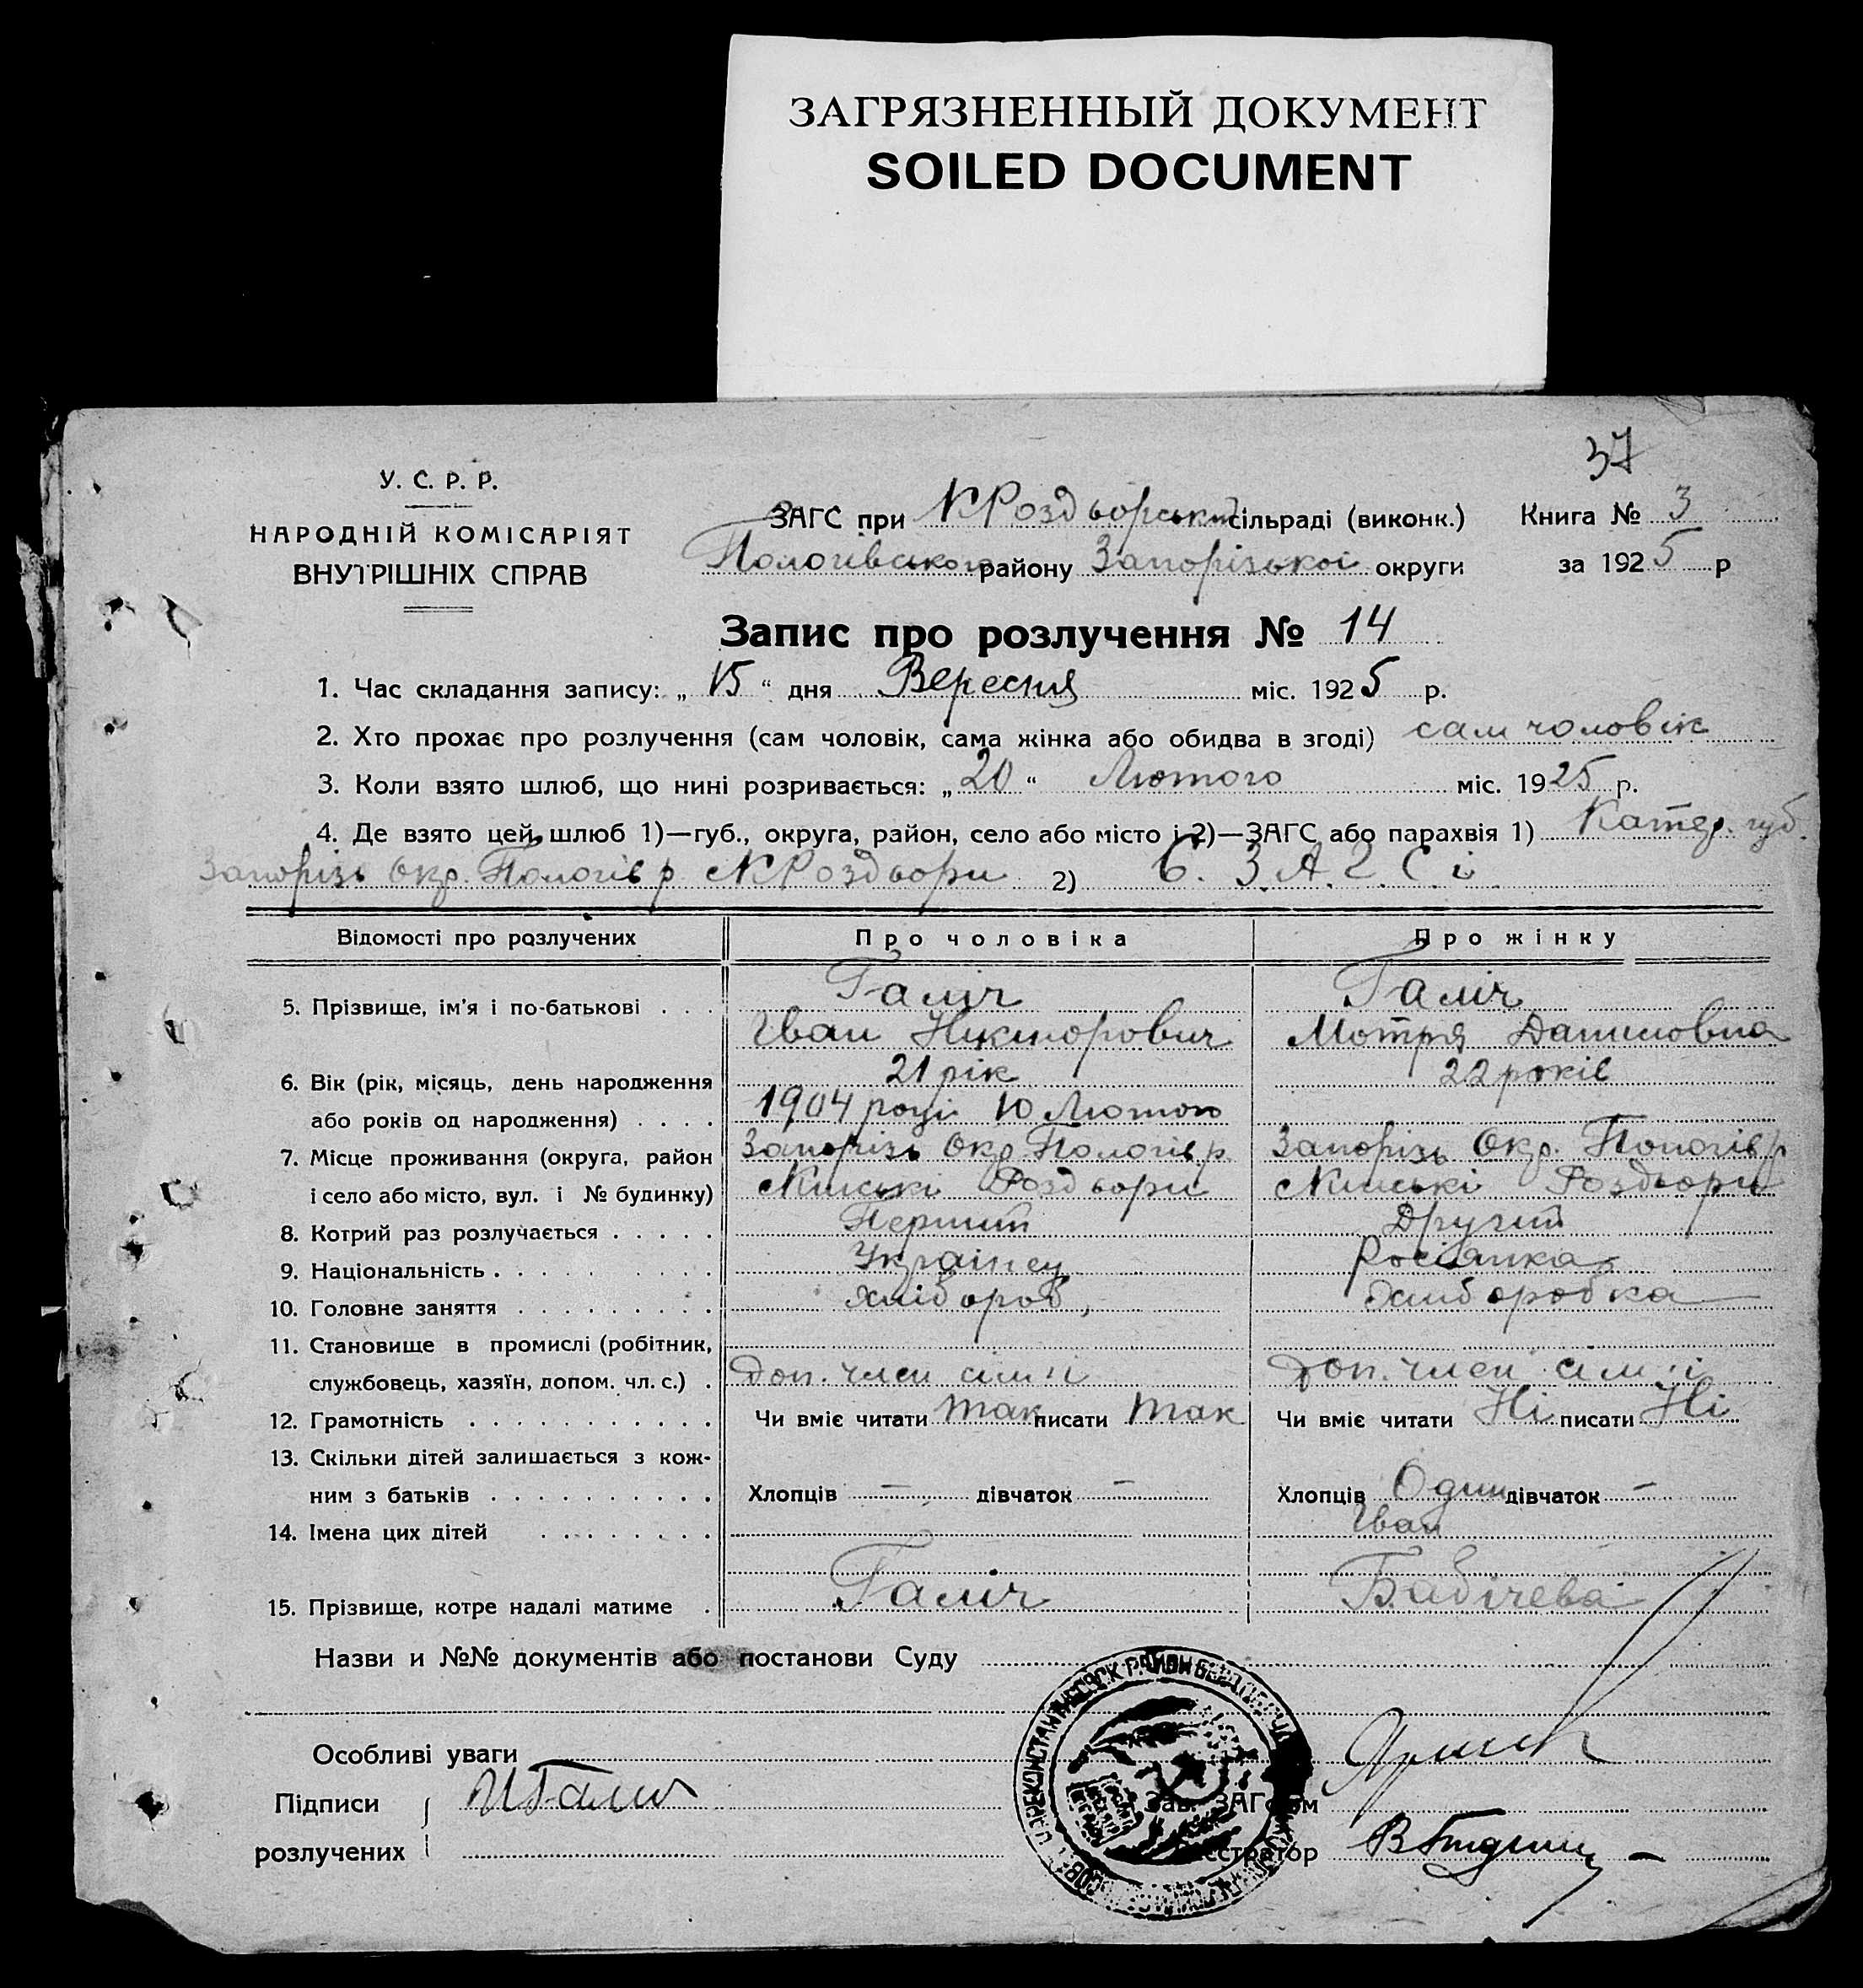 ЗАГРЯЗНЕННЫЙ ДОКУМЕНТ
SOILED DOCUMENT
37
У. С. Р. Р.
НАРОДНІЙ КОМІСАРІЯТ
ВНУТРІШНІХ СПРАВ
ЗАГС при КРоздворській сільраді (виконк.) Книга № 3
Пологівського району Запорізької округи за 1925 р
Запис про розлучення № 14
1. Час складання запису: „ 15 “ дня Вересня міс. 1925 р.
2. Хто прохає про розлучення (сам чоловік, сама жінка або обидва в згоді) сам чоловік
3. Коли взято шлюб, що нині розривається: „ 20 “ Лютого міс. 1925 р.
4. Де взято цей шлюб 1)—губ., округа, район, село або місто і 2)—ЗАГС або парахвія 1) Катер. губ.
Запорізь Окр. Пологів р КРоздори 2) С. З. А. Г. С. і
Відомості про розлучених Про чоловіка Про жінку
5. Прізвище, ім'я і по-батькові . . . Галіч Галіч
Іван Никторович Мотря Даниловна
6. Вік (рік, місяць, день народження 21 рік 22 років
або років од народження) . . . . 1904 році 10 Лютого
7. Місце проживання (округа, район Запорізь Окр. Пологів р. Запорізь Окр. Пологів р
і село або місто, вул. і № будинку) Кінські Роздори Кінські Роздори
8. Котрий раз розлучається . . . . . Перший Другий
9. Національність . . . . . . . . Українец Росіянка
10. Головне заняття . . . . . . . . . хлібороб, Хліборобка
11. Становище в промислі (робітник,
службовець, хазяїн, допом. чл. с.) . Доп. член сімїі Доп. член сімїі
12. Грамотність . . . . . . . . . . . Чи вміє читати так писати так Чи вміє читати Ні писати Ні
13. Скільки дітей залишається з кож-
ним з батьків . . . . . . . . . . Хлопців — дівчаток — Хлопців Один дівчаток —
14. Імена цих дітей . . . . . . . . Іван
15. Прізвище, котре надалі матиме . Галіч Бабічева
Назви и №№ документів або постанови Суду
Особливі уваги
Підписи ИГалич Зав. ЗАГс'ом
розлучених Реєстратор